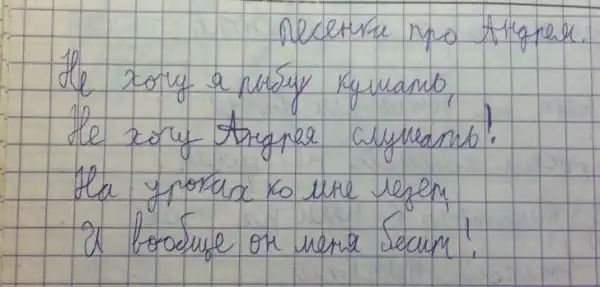 песенка про Андрея.
Не хочу я рыбу кушать,
Не хочу Андрея слушать!
На уроках ко мне лезет,
И вообще он меня бесит!